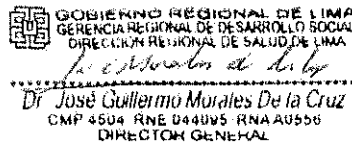 GOBIERNO REGIONAL DE LIMA
GERENCIA REGIONAL DE DESARROLLO SOCIAL
DIRECCIÓN REGIONAL DE SALUD DE LIMA
Dr. José Guillermo Morales De la Cruz
CMP 4504 RNE 044095 RNA A0556
DIRECTOR GENERAL